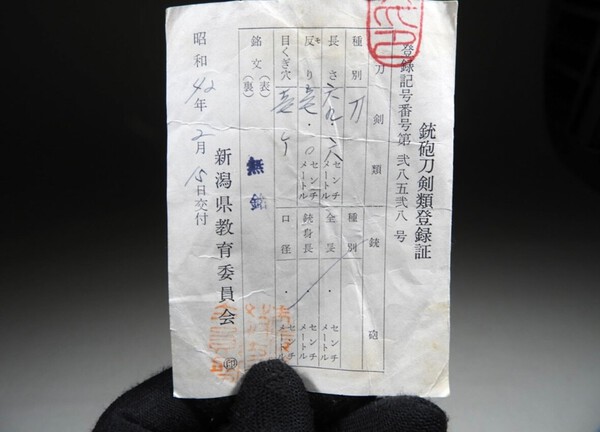 銃砲刀剣類登録証
登録記号番号第 弐八五弐八 号
刀剣類
種別 刀
長さ 六九・六 センチメートル
反り 壱・〇 センチメートル
目くぎ穴 壱ケ
銘文 (表) (裏) 無銘
銃砲
種別
全長 ・ センチメートル
銃身長 ・ センチメートル
口径 ・ センチメートル
昭和42年2月15日交付
新潟県教育委員会 印